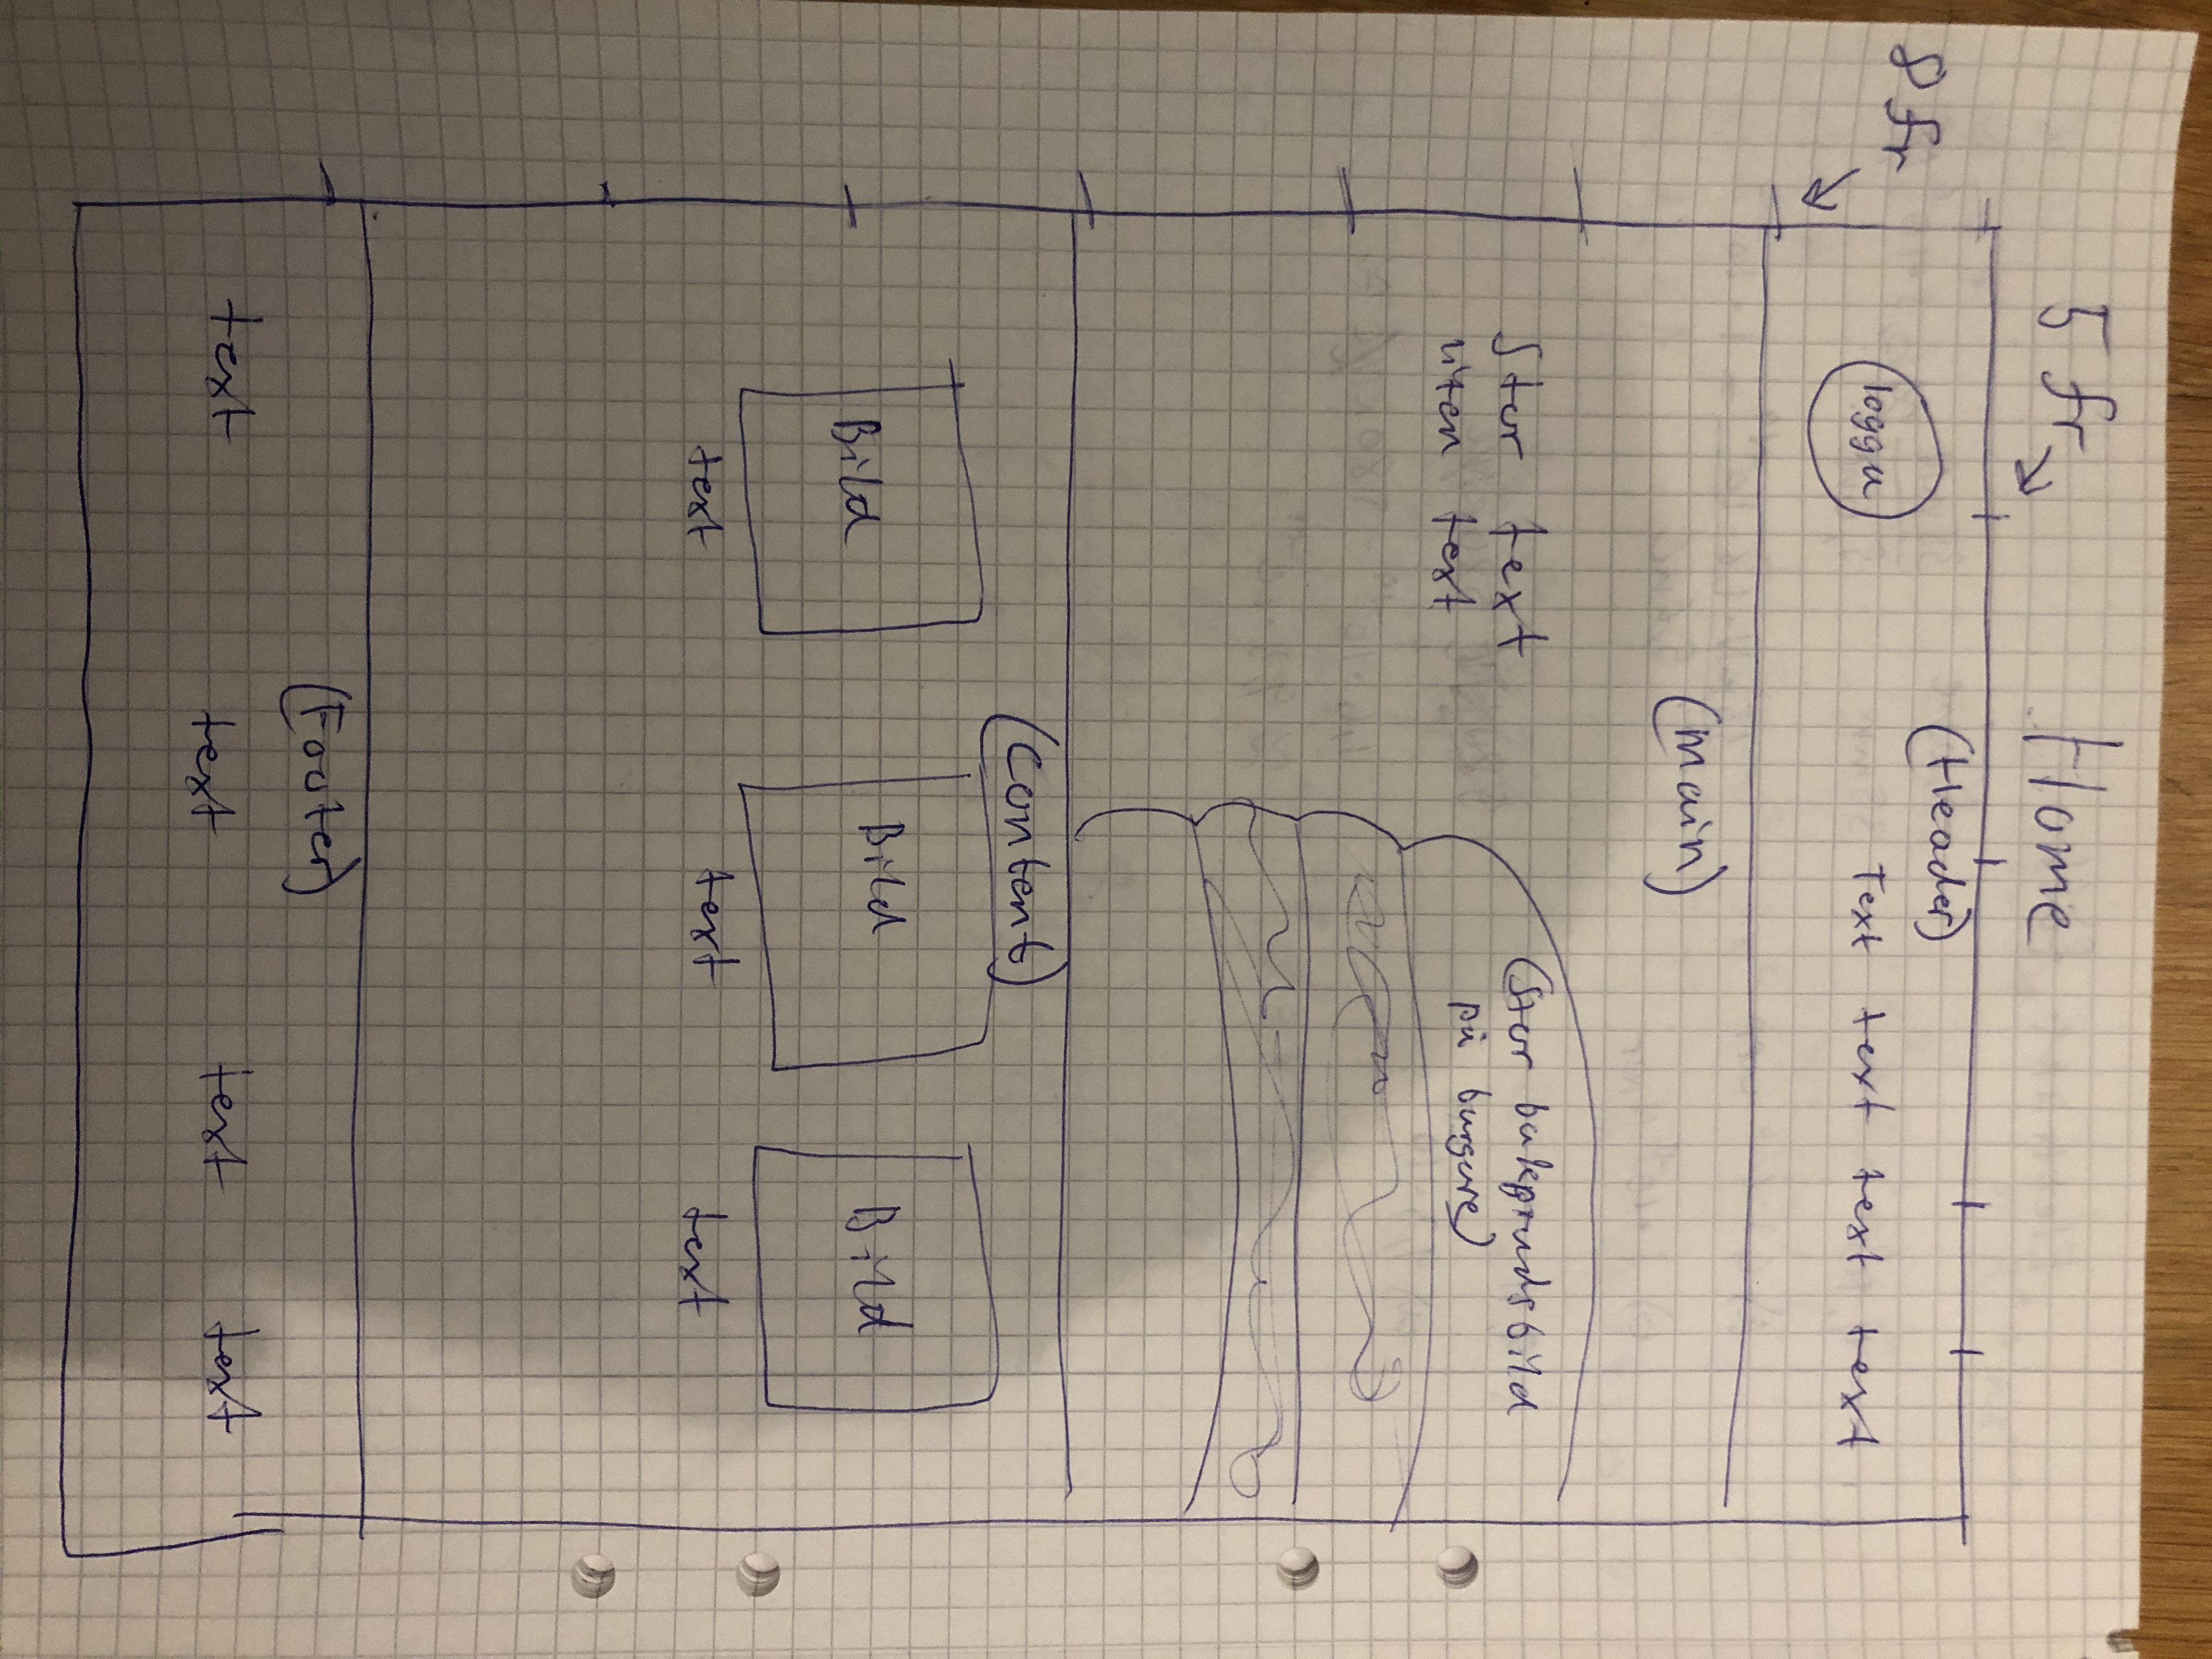 8 fr
5 fr
Home
(Header)
loggu
Text text text text
(main)
Stor text
liten text
(Stor bakgrundsbild
på burgare)
(Content)
Bild Bild Bild
text text text
(Footer)
text text text text